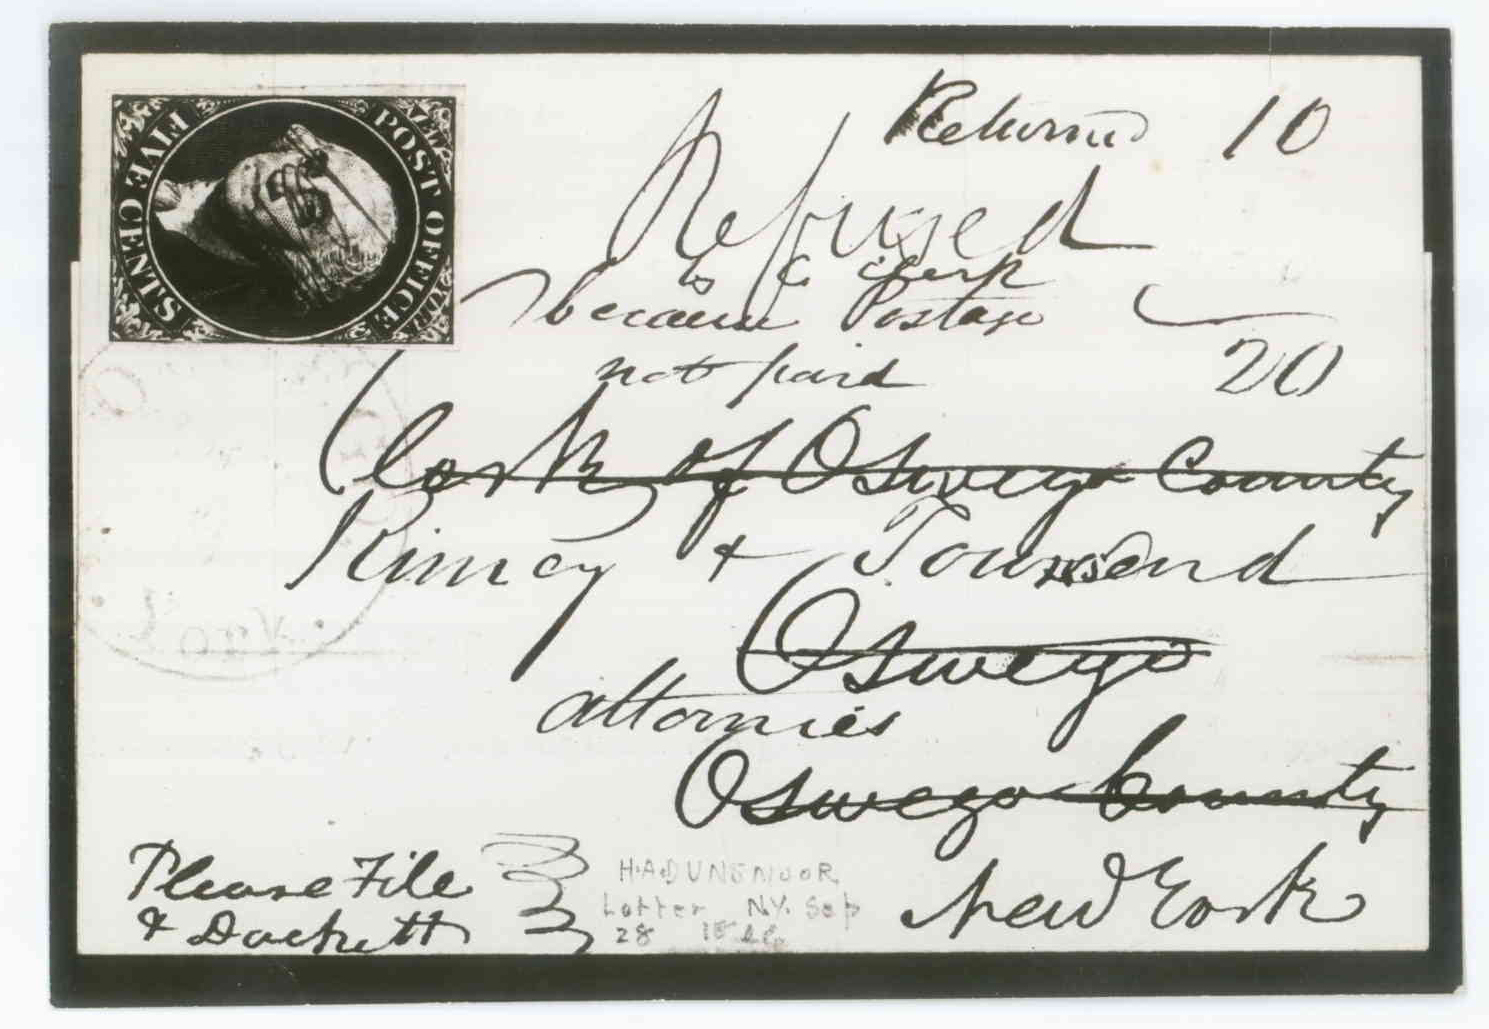 POST OFFICE
FIVE CENTS
Returned 10
Refused
because Postage
not paid 20
Clerk of Oswego County
Kinney & Townsend
Oswego
attornies
Oswego County
New York
Please File
& Dockett
H.A DUNSMOOR
Letter N.Y. Sep
28 1846